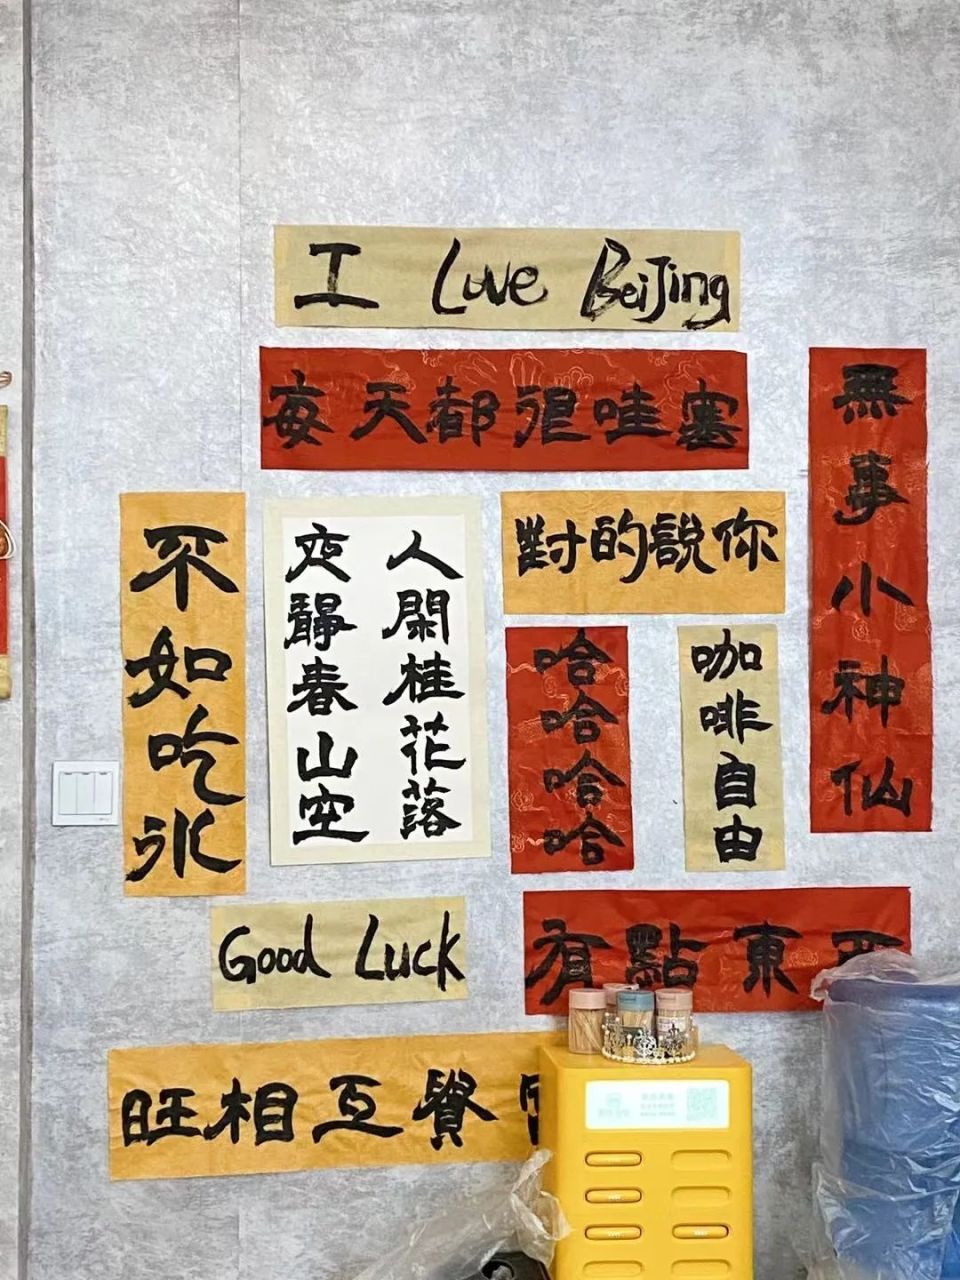 I Love BeiJing
每天都很哇塞
無事小神仙
不如吃冰
人閑桂花落
夜靜春山空
你說的對
哈哈哈哈
咖啡自由
Good Luck
有點東西
資互相旺